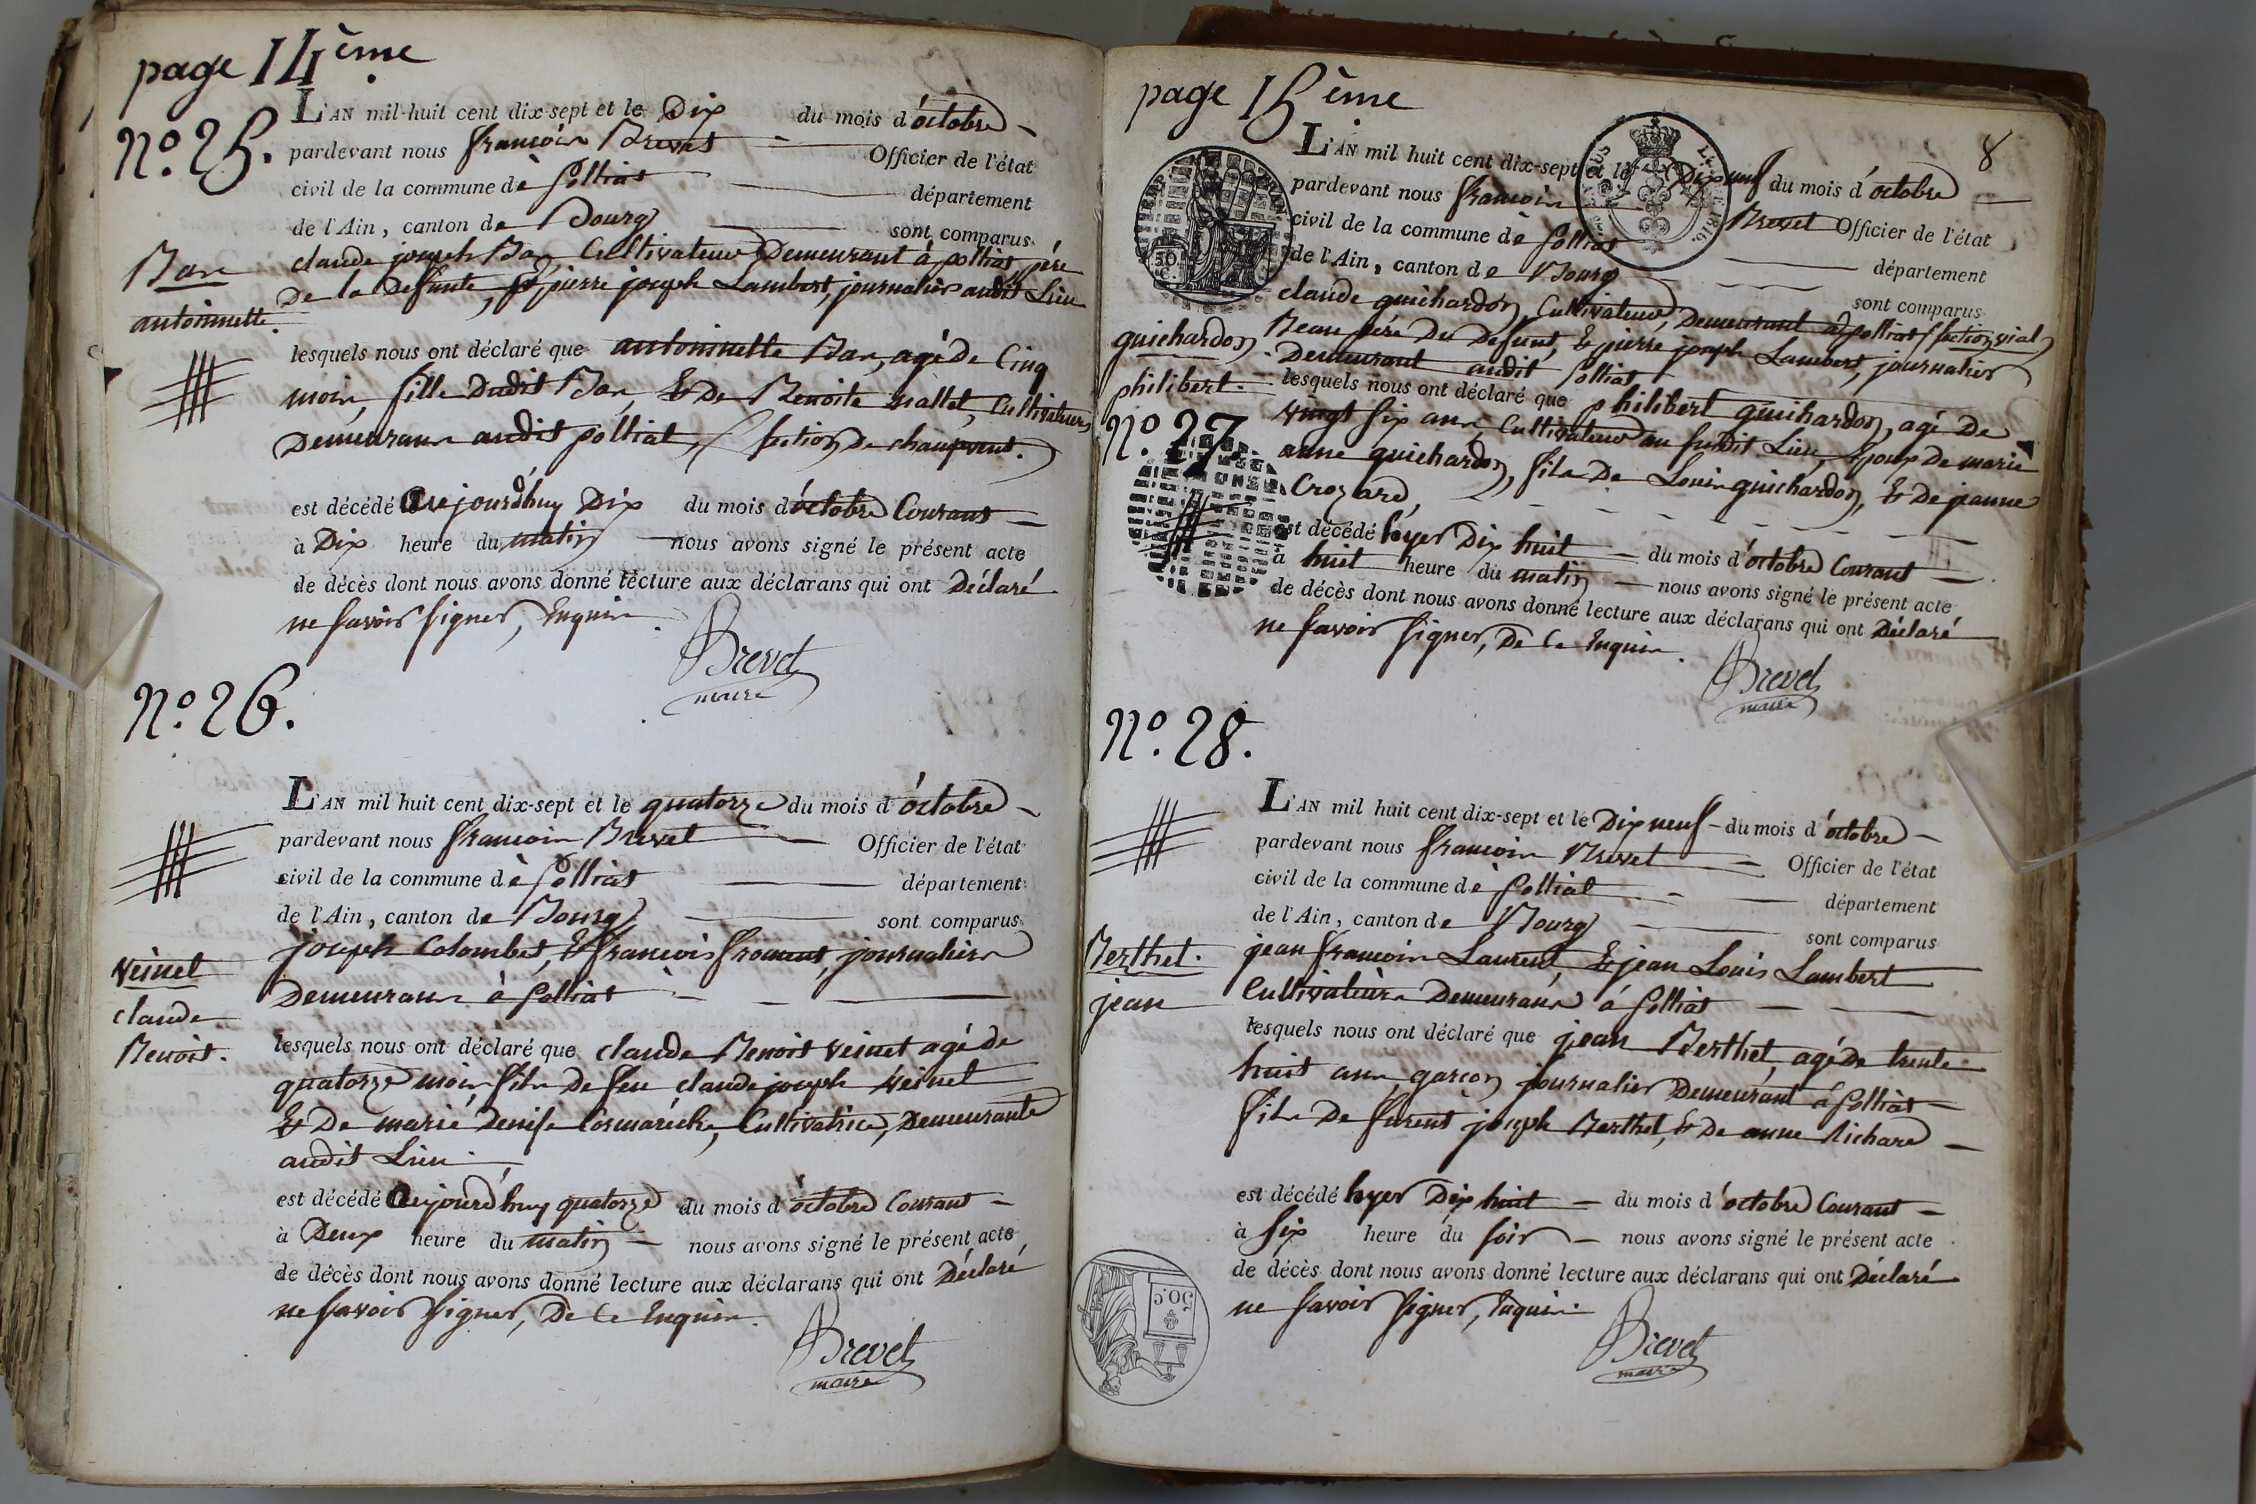 page 14ème
N.º 25.
L'AN mil-huit cent dix-sept et le Dix du mois d'octobre
pardevant nous françois Brevet Officier de l'état
civil de la commune de polliat département
de l'Ain, canton de Bourg sont comparus
Bar
antoinnette
claude joseph Bar Cultivateur Demeurant à polliat, père
De la Defunte, & pierre joseph Lambert, journalier audit Lieu
lesquels nous ont déclaré que antoinnette Bar, agé De Cinq
mois, fille Dudit Bar, & De Benoite mallet, Cultivateurs
Demeurans audit polliat,
est décédé Aujourd'huy Dix du mois d'octobre Courant
à Dix heure du matin nous avons signé le présent acte
de décès dont nous avons donné lecture aux déclarans qui ont Déclaré
ne savoir signer, Enquis.
Brevet
maire
N.º 26.
L'AN mil huit cent dix-sept et le quatorze du mois d'octobre
pardevant nous françois Brevet Officier de l'état
civil de la commune de polliat département
de l'Ain, canton de Bourg sont comparus
joseph Colombet, & françois froment, journaliers
Demeurans à polliat
veinet
claude
Benoit.
lesquels nous ont déclaré que claude Benoit veinet agé de
quatorze mois fils De feu claude joseph veinet
& De marie Denise Cormarèche, Cultivatrice, Demeurante
audit Lieu.
est décédé Aujourd'huy quatorze du mois d'octobre Courant
à Deux heure du matin nous avons signé le présent acte
de décès dont nous avons donné lecture aux déclarans qui ont Déclaré
ne savoir signer, De Ce Enquis.
Brevet
maire
page 15ème
8
L'AN mil huit cent dix-sept et le Dix neuf du mois d'octobre
pardevant nous françois Brevet Officier de l'état
civil de la commune de polliat département
de l'Ain, canton de Bourg sont comparus
claude guichardon, Cultivateur, Demeurant à polliat
Beau père Du Defunt, & pierre joseph Lambert, journalier
Demeurant audit polliat
guichardon
philibert.
N.º 27.
lesquels nous ont déclaré que philibert guichardon, agé De
vingt six ans, Cultivateur au susdit Lieu, Epoux De marie
anne guichardon, fils De Louis guichardon, & De jeanne
Crozard,
est décédé hyer Dix huit du mois d'octobre Courant
à huit heure du matin nous avons signé le présent acte
de décès dont nous avons donné lecture aux déclarans qui ont Déclaré
ne savoir signer, De Ce Enquis.
Brevet
maire
N.º 28.
L'AN mil huit cent dix-sept et le Dix neuf du mois d'octobre
pardevant nous françois Brevet Officier de l'état
civil de la commune de polliat département
de l'Ain, canton de Bourg sont comparus
Berthet.
jean
jean françois Laurent, & jean Louis Lambert
Cultivateurs Demeurans à polliat
lesquels nous ont déclaré que jean Berthet, agé De trente
huit ans, garçon journalier Demeurant à polliat
fils De furent joseph Berthet, & De anne Richard
est décédé hyer Dix huit du mois d'octobre Courant
à six heure du soir nous avons signé le présent acte
de décès dont nous avons donné lecture aux déclarans qui ont Déclaré
ne savoir signer, Enquis.
Brevet
maire
50 C.